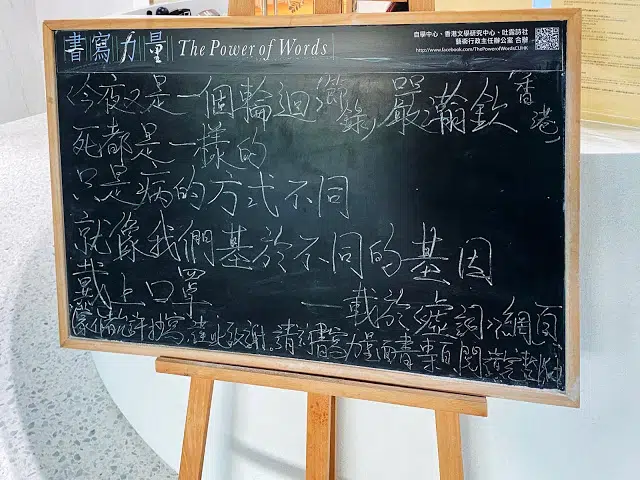 書寫力量 The Power of Words
自學中心、香港文學研究中心、吐露詩社
藝術行政主任辦公室 合辦
http://www.facebook.com/ThePowerofWordsCUHK
〈今夜又是一個輪迴(節錄)〉嚴瀚欽(香港)
死都是一樣的
只是病的方式不同
就像我們基於不同的基因
戴上口罩
—載於虛詞網頁
蒙作者允許抄寫,謹此致謝。請到書寫力量面書專頁閱讀完整版